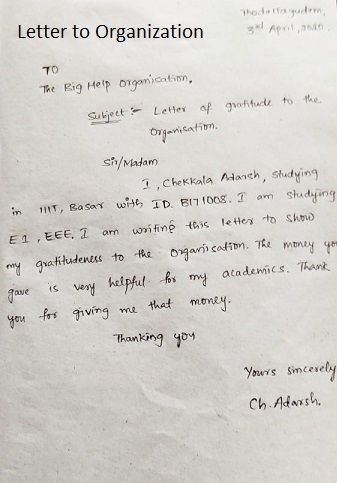 Letter to Organization
3rd April,
TO
The Big Help Organisation,
Subject :- Letter of gratitude to the
Organisation.
Sir/Madam
I, Chekkala Adarsh, Studying
in IIIT, Basar with ID. B171008. I am studying
E1, EEE. I am writing this letter to show
my gratitudeness to the Organisation. The money you
gave is very helpful for my academics. Thank
you for giving me that money.
Thanking you
Yours sincerely
Ch. Adarsh.